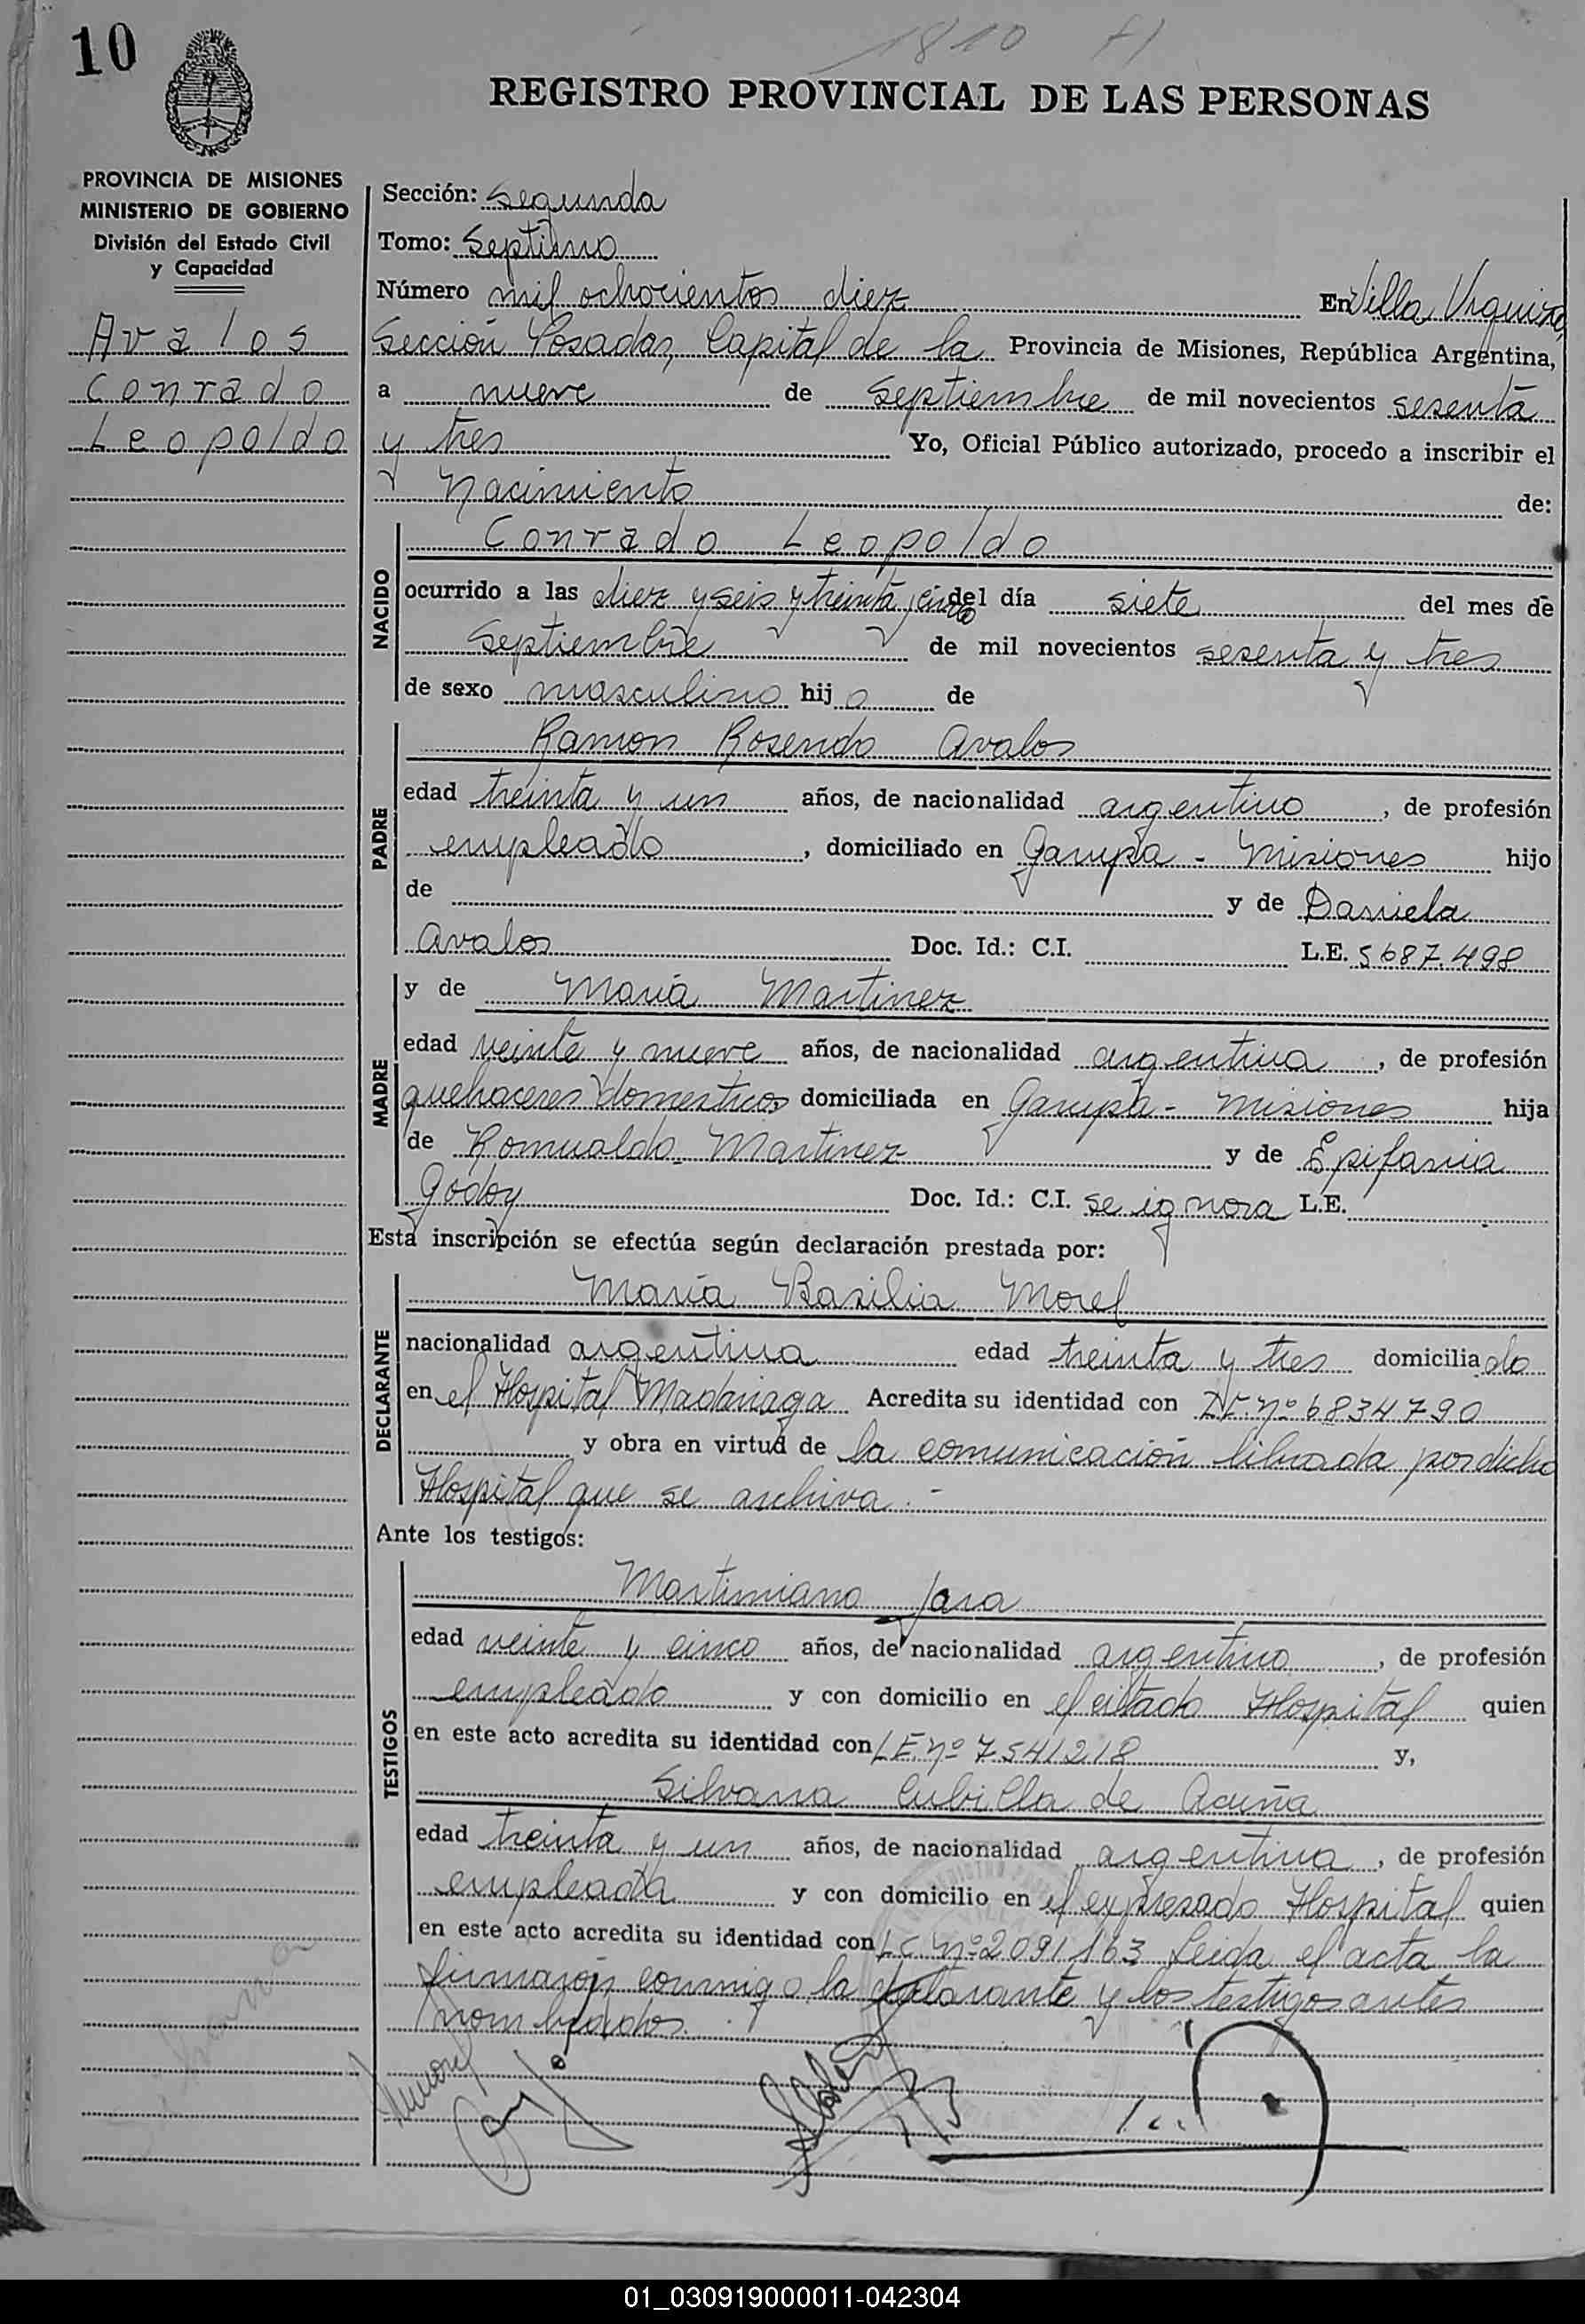 10
1810 f1
REGISTRO PROVINCIAL DE LAS PERSONAS
PROVINCIA DE MISIONES
MINISTERIO DE GOBIERNO
División del Estado Civil
y Capacidad
Avalos
Conrado
Leopoldo
Sección: Segunda
Tomo: Septimo
Número mil ochocientos diez En Villa Urquiza,
Sección Posadas, Capital de la Provincia de Misiones, República Argentina,
a nueve de Septiembre de mil novecientos sesenta
y tres Yo, Oficial Público autorizado, procedo a inscribir el
Nacimiento de:
NACIDO
Conrado Leopoldo
ocurrido a las diez y seis y treinta y cinco del día siete del mes de
Septiembre de mil novecientos sesenta y tres
de sexo masculino hijo de
PADRE
Ramon Rosendo Avalos
edad treinta y un años, de nacionalidad argentino, de profesión
empleado, domiciliado en Garupá - Misiones hijo
de y de Daniela
Avalos Doc. Id.: C.I. L.E. 5687.498
MADRE
y de María Martinez
edad veinte y nueve años, de nacionalidad argentina, de profesión
quehaceres domesticos domiciliada en Garupá - Misiones hija
de Romualdo Martinez y de Epifania
Godoy Doc. Id.: C.I. se ignora L.E.
Esta inscripción se efectúa según declaración prestada por:
DECLARANTE
María Basilia Morel
nacionalidad argentina edad treinta y tres domiciliado
en el Hospital Madariaga Acredita su identidad con nº 6834790
y obra en virtud de la comunicación librada por dicho
Hospital que se archiva.-
Ante los testigos:
TESTIGOS
Martimiano Jara
edad veinte y cinco años, de nacionalidad argentino, de profesión
empleado y con domicilio en el citado Hospital quien
en este acto acredita su identidad con LE. nº 7541218 y,
Silvana Cubilla de Acuña
edad treinta y un años, de nacionalidad argentina, de profesión
empleada y con domicilio en el expresado Hospital quien
en este acto acredita su identidad con LC nº 2091163 Leida el acta la
firmaron conmigo la declarante y los testigos antes
nombrados.
01_030919000011-042304